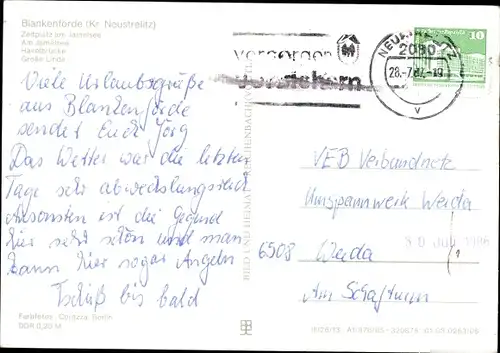 Blankenförde (Kr Neustrelitz)
Zeltplatz am Jamelsee
Am Jamelsee
Havelbrücke
Große Linde
Viele Urlaubsgrüße
aus Blankenförde
sendet Euch Jörg
Das Wetter war die letzten
Tage sehr abwechslungsreich
Ansonsten ist die Gegend
hier sehr schön und man
kann hier sogar Angeln
Tschüß bis bald
Berlin
DDR 0,20 M
BILD UND HEIMAT REICHENBACH
versorgen
2080
28.-7.87.-19
V
10
VEB Verbundnetz
Umspannwerk Weida
6508 Weida
Am Schafturm